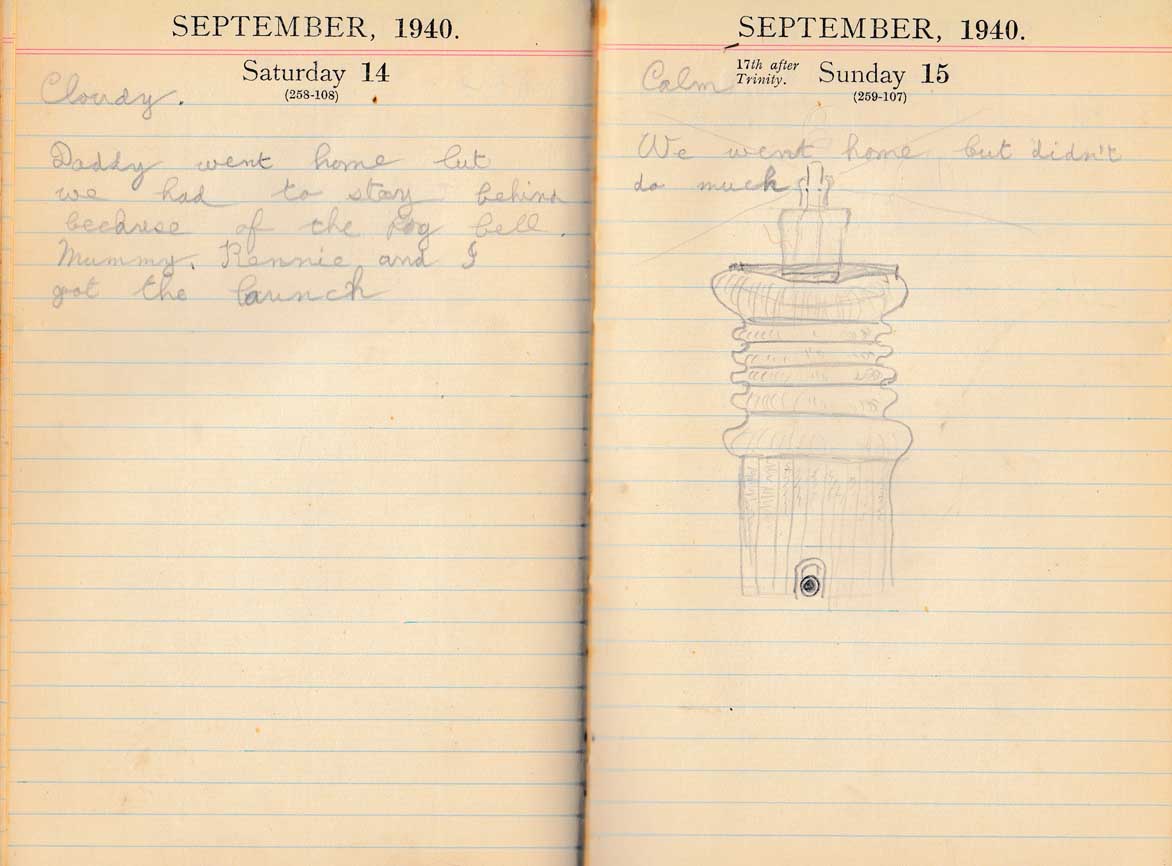 SEPTEMBER, 1940.
Saturday 14
(258-108)
Cloudy.
Daddy went home but
we had to stay behind
because of the fog bell.
Mummy, Rennie and I
got the launch
SEPTEMBER, 1940.
17th after
Trinity.
Sunday 15
(259-107)
Calm
We went home but didn't
do much